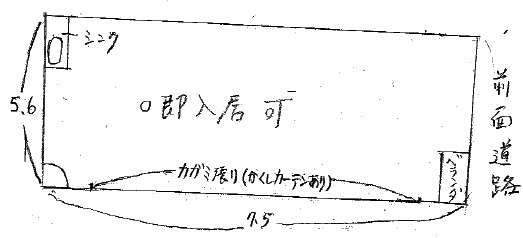 シンク
5.6
○即入居可
前面道路
カガミ張り(かくしカーテンあり)
ベランダ
7.5